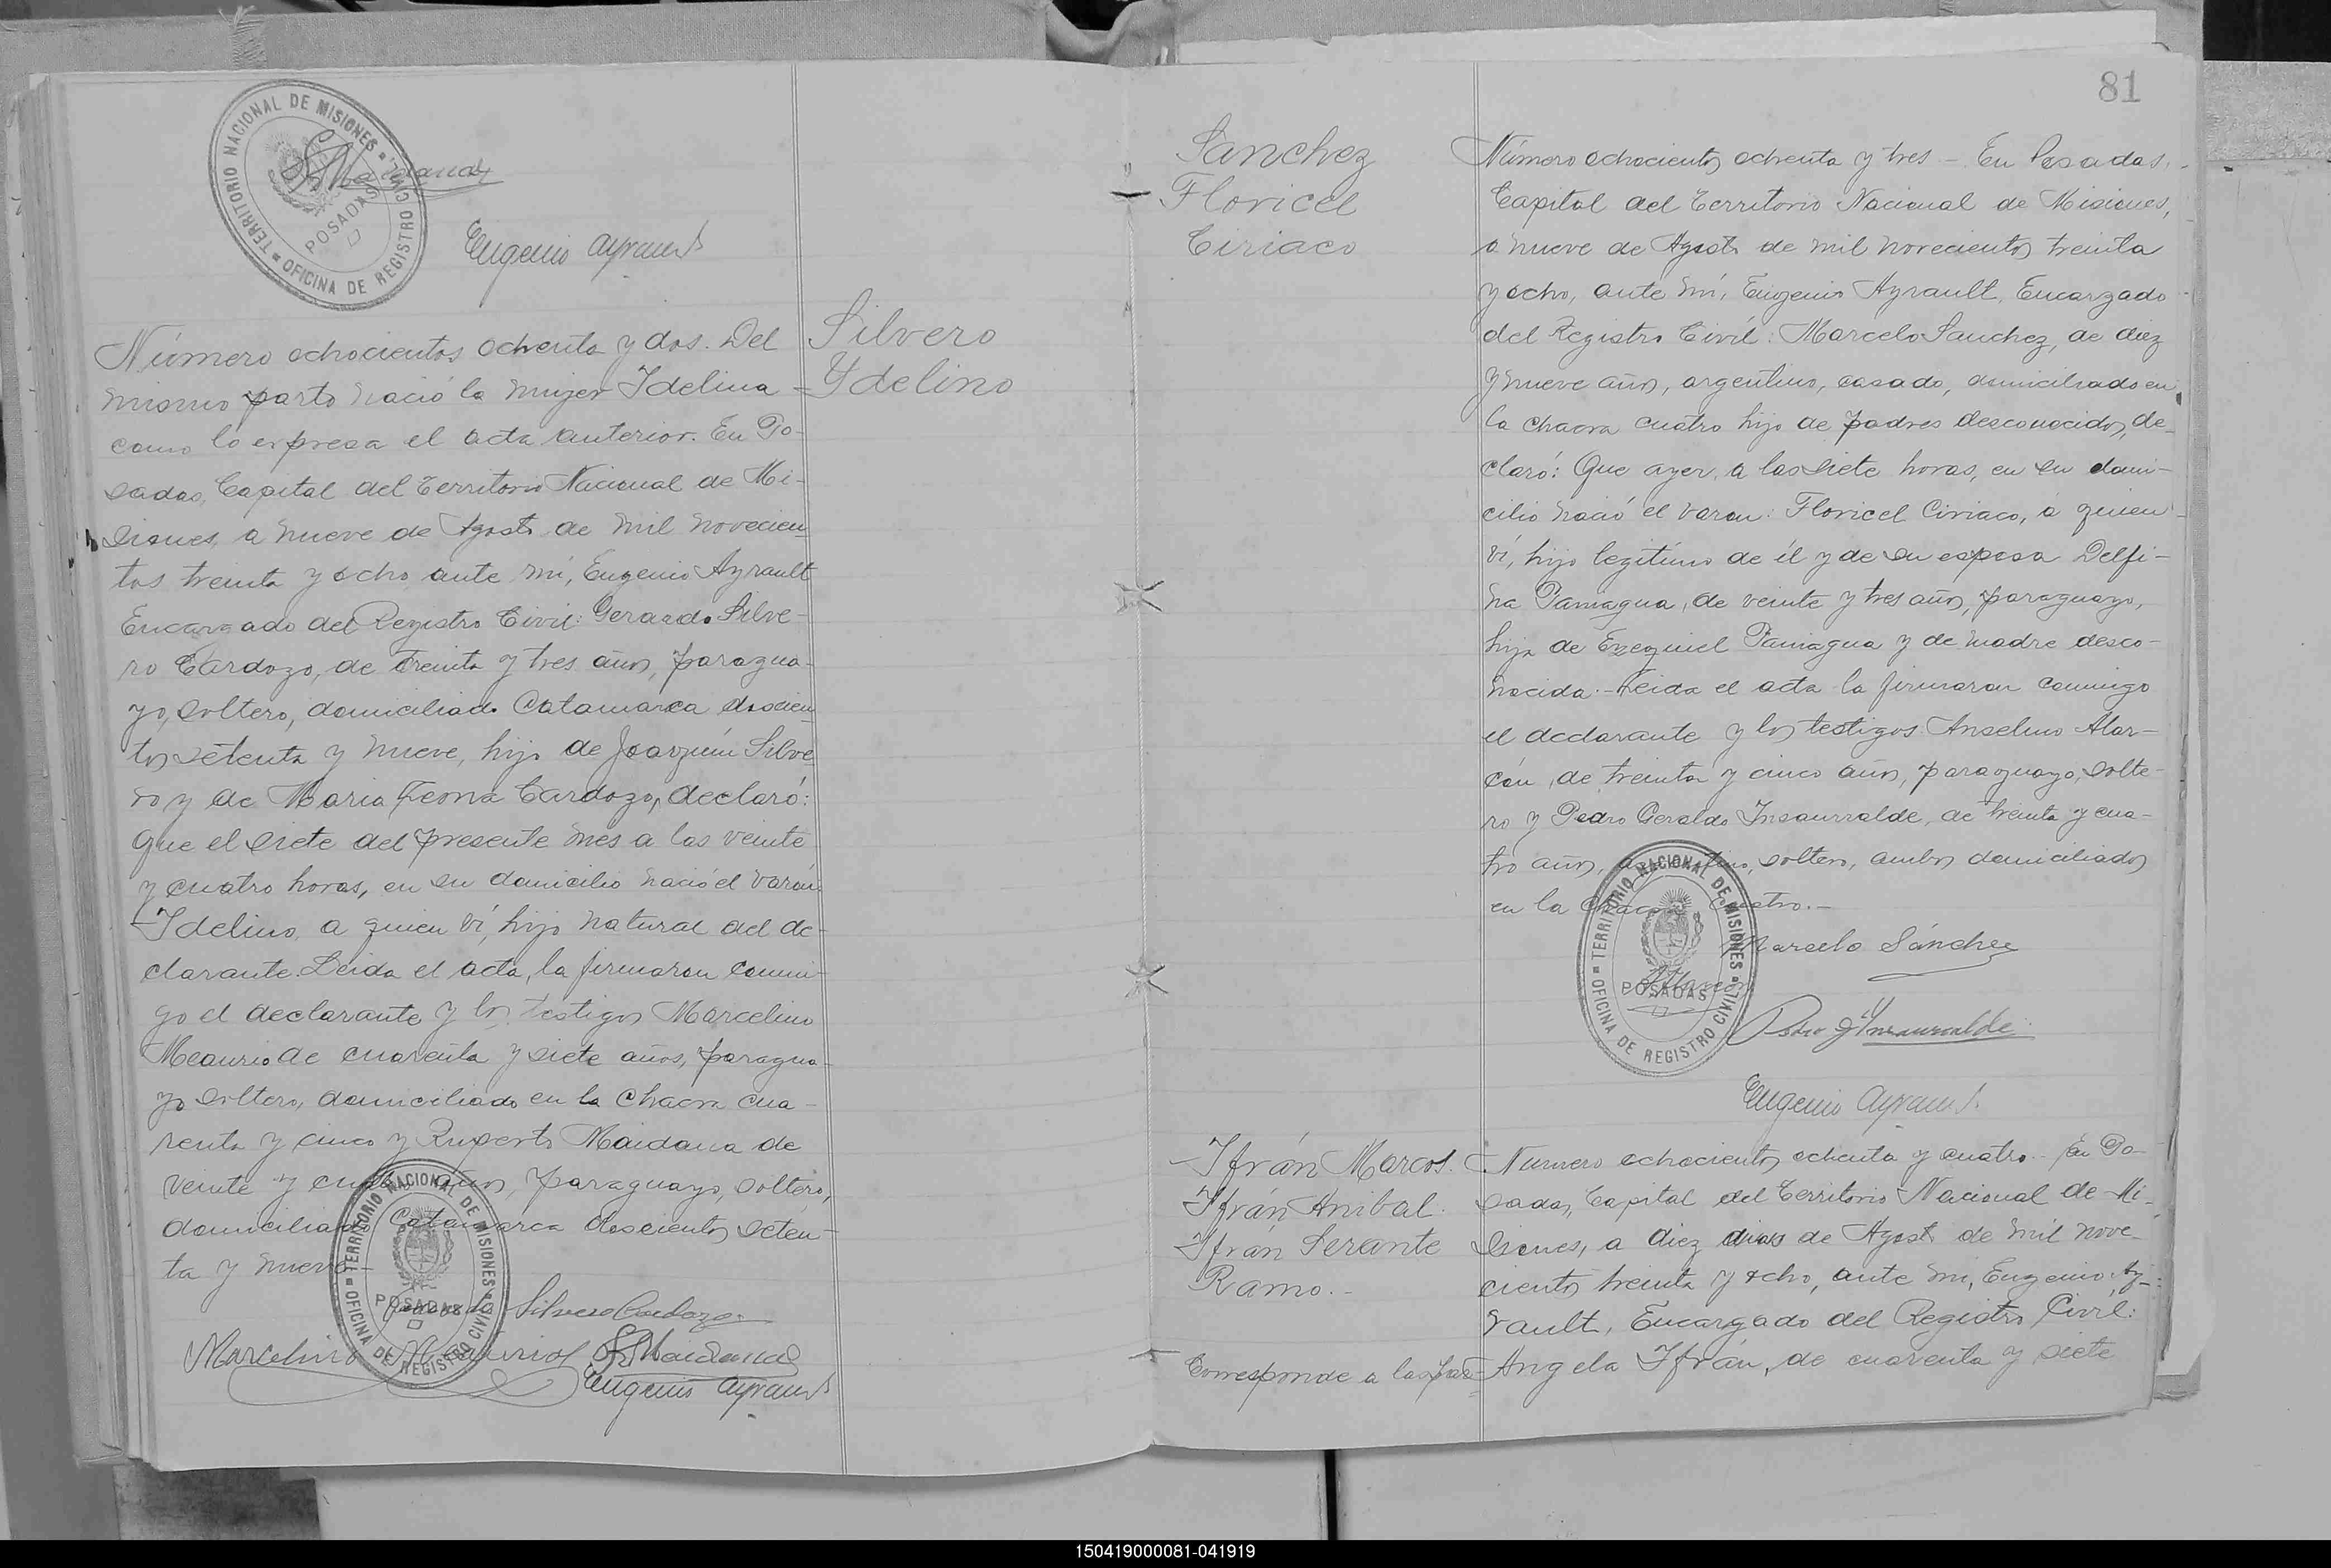 TERRITORIO NACIONAL DE MISIONES
OFICINA DE REGISTRO CIVIL
POSADAS
Eugenio Ayrault
Número ochocientos ochenta y dos. Del
mismo parto nació la mujer Idelina
como lo expresa el acta anterior. En Po-
sadas, Capital del Territorio Nacional de Mi-
siones, a nueve de Agosto de mil novecien-
tos treinta y ocho, ante mí, Eugenio Ayrault
Encargado del Registro Civil: Gerardo Silve-
ro Cardozo, de treinta y tres años, paragua-
yo, soltero, domiciliado Catamarca doscien-
tos setenta y nueve, hijo de Joaquín Silve-
ro y de Maria Leona Cardozo, declaró:
Que el siete del presente mes a las veinte
y cuatro horas, en su domicilio nació el varón
Idelino, a quien ví, hijo natural del de-
clarante. Leida el acta, la firmaron conmi-
go el declarante y los testigos Marcelino
Meaurio de cuarenta y siete años, paragua-
yo soltero, domiciliado en la Chacra cua-
renta y cinco y Ruperto Maidana de
veinte y años, paraguayo, soltero,
domiciliado Catamarca doscientos seten-
ta y nueve.-
TERRITORIO NACIONAL DE MISIONES
OFICINA DE REGISTRO CIVIL
POSADAS
Gerardo Silvero Cardozo
Marcelino Meaurio R Maidana
Eugenio Ayrault
Silvero
Ydelino
81
Sanchez
Floricel
Ciriaco
Número ochocientos ochenta y tres - En Posadas,
Capital del Territorio Nacional de Misiones,
a nueve de Agosto de mil novecientos treinta
y ocho, ante mí, Eugenio Ayrault, Encargado
del Registro Civíl: Marcelo Sanchez, de diez
y nueve años, argentino, casado, domiciliado en
la chacra cuatro hijo de padres desconocidos, de-
claró: Que ayer, a las siete horas, en su domi-
cilio nació el varon: Floricel Ciriaco, a quien
ví, hijo legitimo de él y de su esposa Delfi-
na Paniagua, de veinte y tres años, paraguaya,
hija de Ezequiel Paniagua y de madre desco-
nocida.- Leida el acta la firmaron conmigo
el declarante y los testigos Anselmo Alar-
cón, de treinta y cinco años, paraguayo, solte-
ro y Pedro Geraldo Insaurralde, de treinta y cua-
tro años, argentino, soltero, ambos domiciliados
en la Chacra Cuatro.-
TERRITORIO NACIONAL DE MISIONES
OFICINA DE REGISTRO CIVIL
POSADAS
Marcelo Sánchez
AAlarcon
Pedro G Insaurralde
Eugenio Ayrault
Ifrán Marcos.
Ifrán Anibal.
Ifrán Serante
Ramo.-
Corresponde a las
Numero ochocientos ochenta y cuatro.- En Po-
sadas, Capital del Territorio Nacional de Mi-
siones, a diez dias de Agosto de mil nove-
cientos treinta y ocho, ante mi, Eugenio Ay-
rault, Encargado del Registro Civíl:
Angela Ifrán, de cuarenta y siete
150419000081-041919